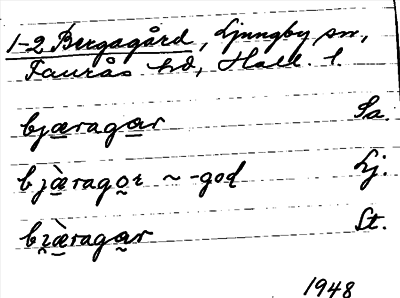 1-2 Bergagård, Ljungby sn,
Faurås hd, Hall. l.
bjæragar Sa.
bjæ̀ragọr ~ -gọd Lj.
bı̣æ̀ragar St.
1948